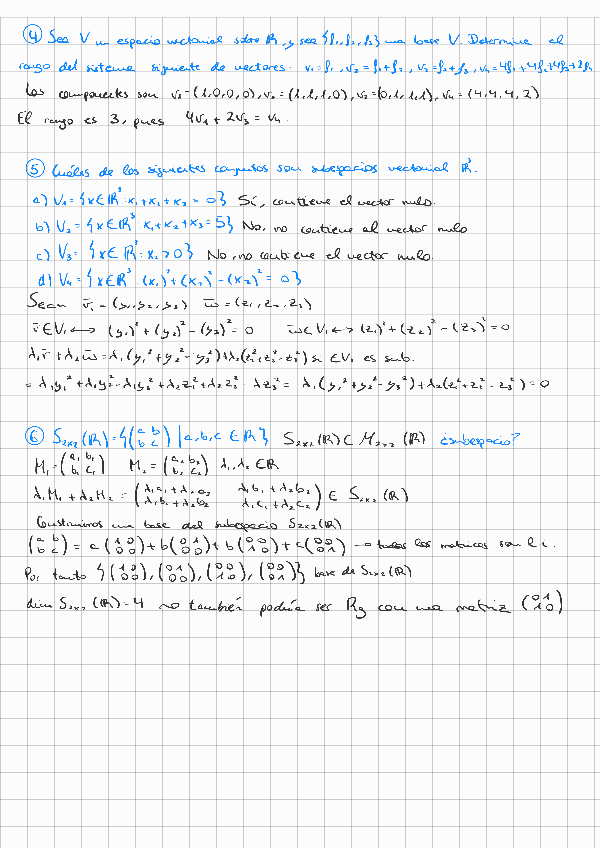 ④ Sea V un espacio vectorial sobre R, y sea {f₁, f₂, f₃} una base V. Determine el
rango del sistema siguiente de vectores: v₁=f₁, v₂=f₁+f₂, v₃=f₂+f₃, v₄=4f₁+4f₂+4f₃+2f₄
Los componentes son v₁=(1,0,0,0), v₂=(1,1,1,0), v₃=(0,1,1,1), v₄=(4,4,4,2)
El rango es 3, pues 4v₁ + 2v₃ = v₄.
⑤ Cuáles de los siguientes conjuntos son subespacios vectorial R³.
a) V₁ = {x∈R³: x₁+x₂+x₃ = 0} Sí, contiene el vector nulo.
b) V₂ = {x∈R³: x₁+x₂+x₃=5} No, no contiene al vector nulo
c) V₃ = {x∈R³: x₁>0} No, no contiene el vector nulo.
d) V₄ = {x∈R³: (x₁)²+(x₂)²-(x₃)²=0}
Sean v̄ = (y₁,y₂,y₃) w̄=(z₁,z₂,z₃)
v̄∈V₁ ↔ (y₁)²+(y₂)²-(y₃)²=0 w̄∈V₁ ↔ (z₁)²+(z₂)²-(z₃)²=0
λ₁v̄+λ₂w̄=λ₁(y₁²+y₂²-y₃²)+λ₂(z₁²+z₂²-z₃²) si ∈V₁ es sub.
= λ₁y₁²+λ₁y₂²-λ₁y₃²+λ₂z₁²+λ₂z₂²-λz₃² = λ₁(y₁²+y₂²-y₃²)+λ₂(z₁²+z₂²-z₃²)=0
⑥ S₂ₓ₂(R)={(a b / b c) | a,b,c ∈ R} S₂ₓ₂(R)⊂M₂ₓ₂(R) ¿subespacio?
M₁=(a₁ b₁ / b₁ c₁) M₂=(a₂ b₂ / b₂ c₂) λ₁,λ₂∈R
λ₁M₁+λ₂M₂=(λ₁a₁+λ₂a₂ λ₁b₁+λ₂b₂ / λ₁b₁+λ₂b₂ λ₁c₁+λ₂c₂) ∈ S₂ₓ₂(R)
Construimos una base del subespacio S₂ₓ₂(R)
(a b / b c) = a(1 0 / 0 0)+b(0 1 / 0 0)+b(0 0 / 1 0)+c(0 0 / 0 1) → todas las matrices son l.i.
Por tanto {(1 0 / 0 0),(0 1 / 0 0),(0 0 / 1 0),(0 0 / 0 1)} base de S₂ₓ₂(R)
dim S₂ₓ₂(R)=4 → también podría ser Rg con una matriz (0 1 / 1 0)